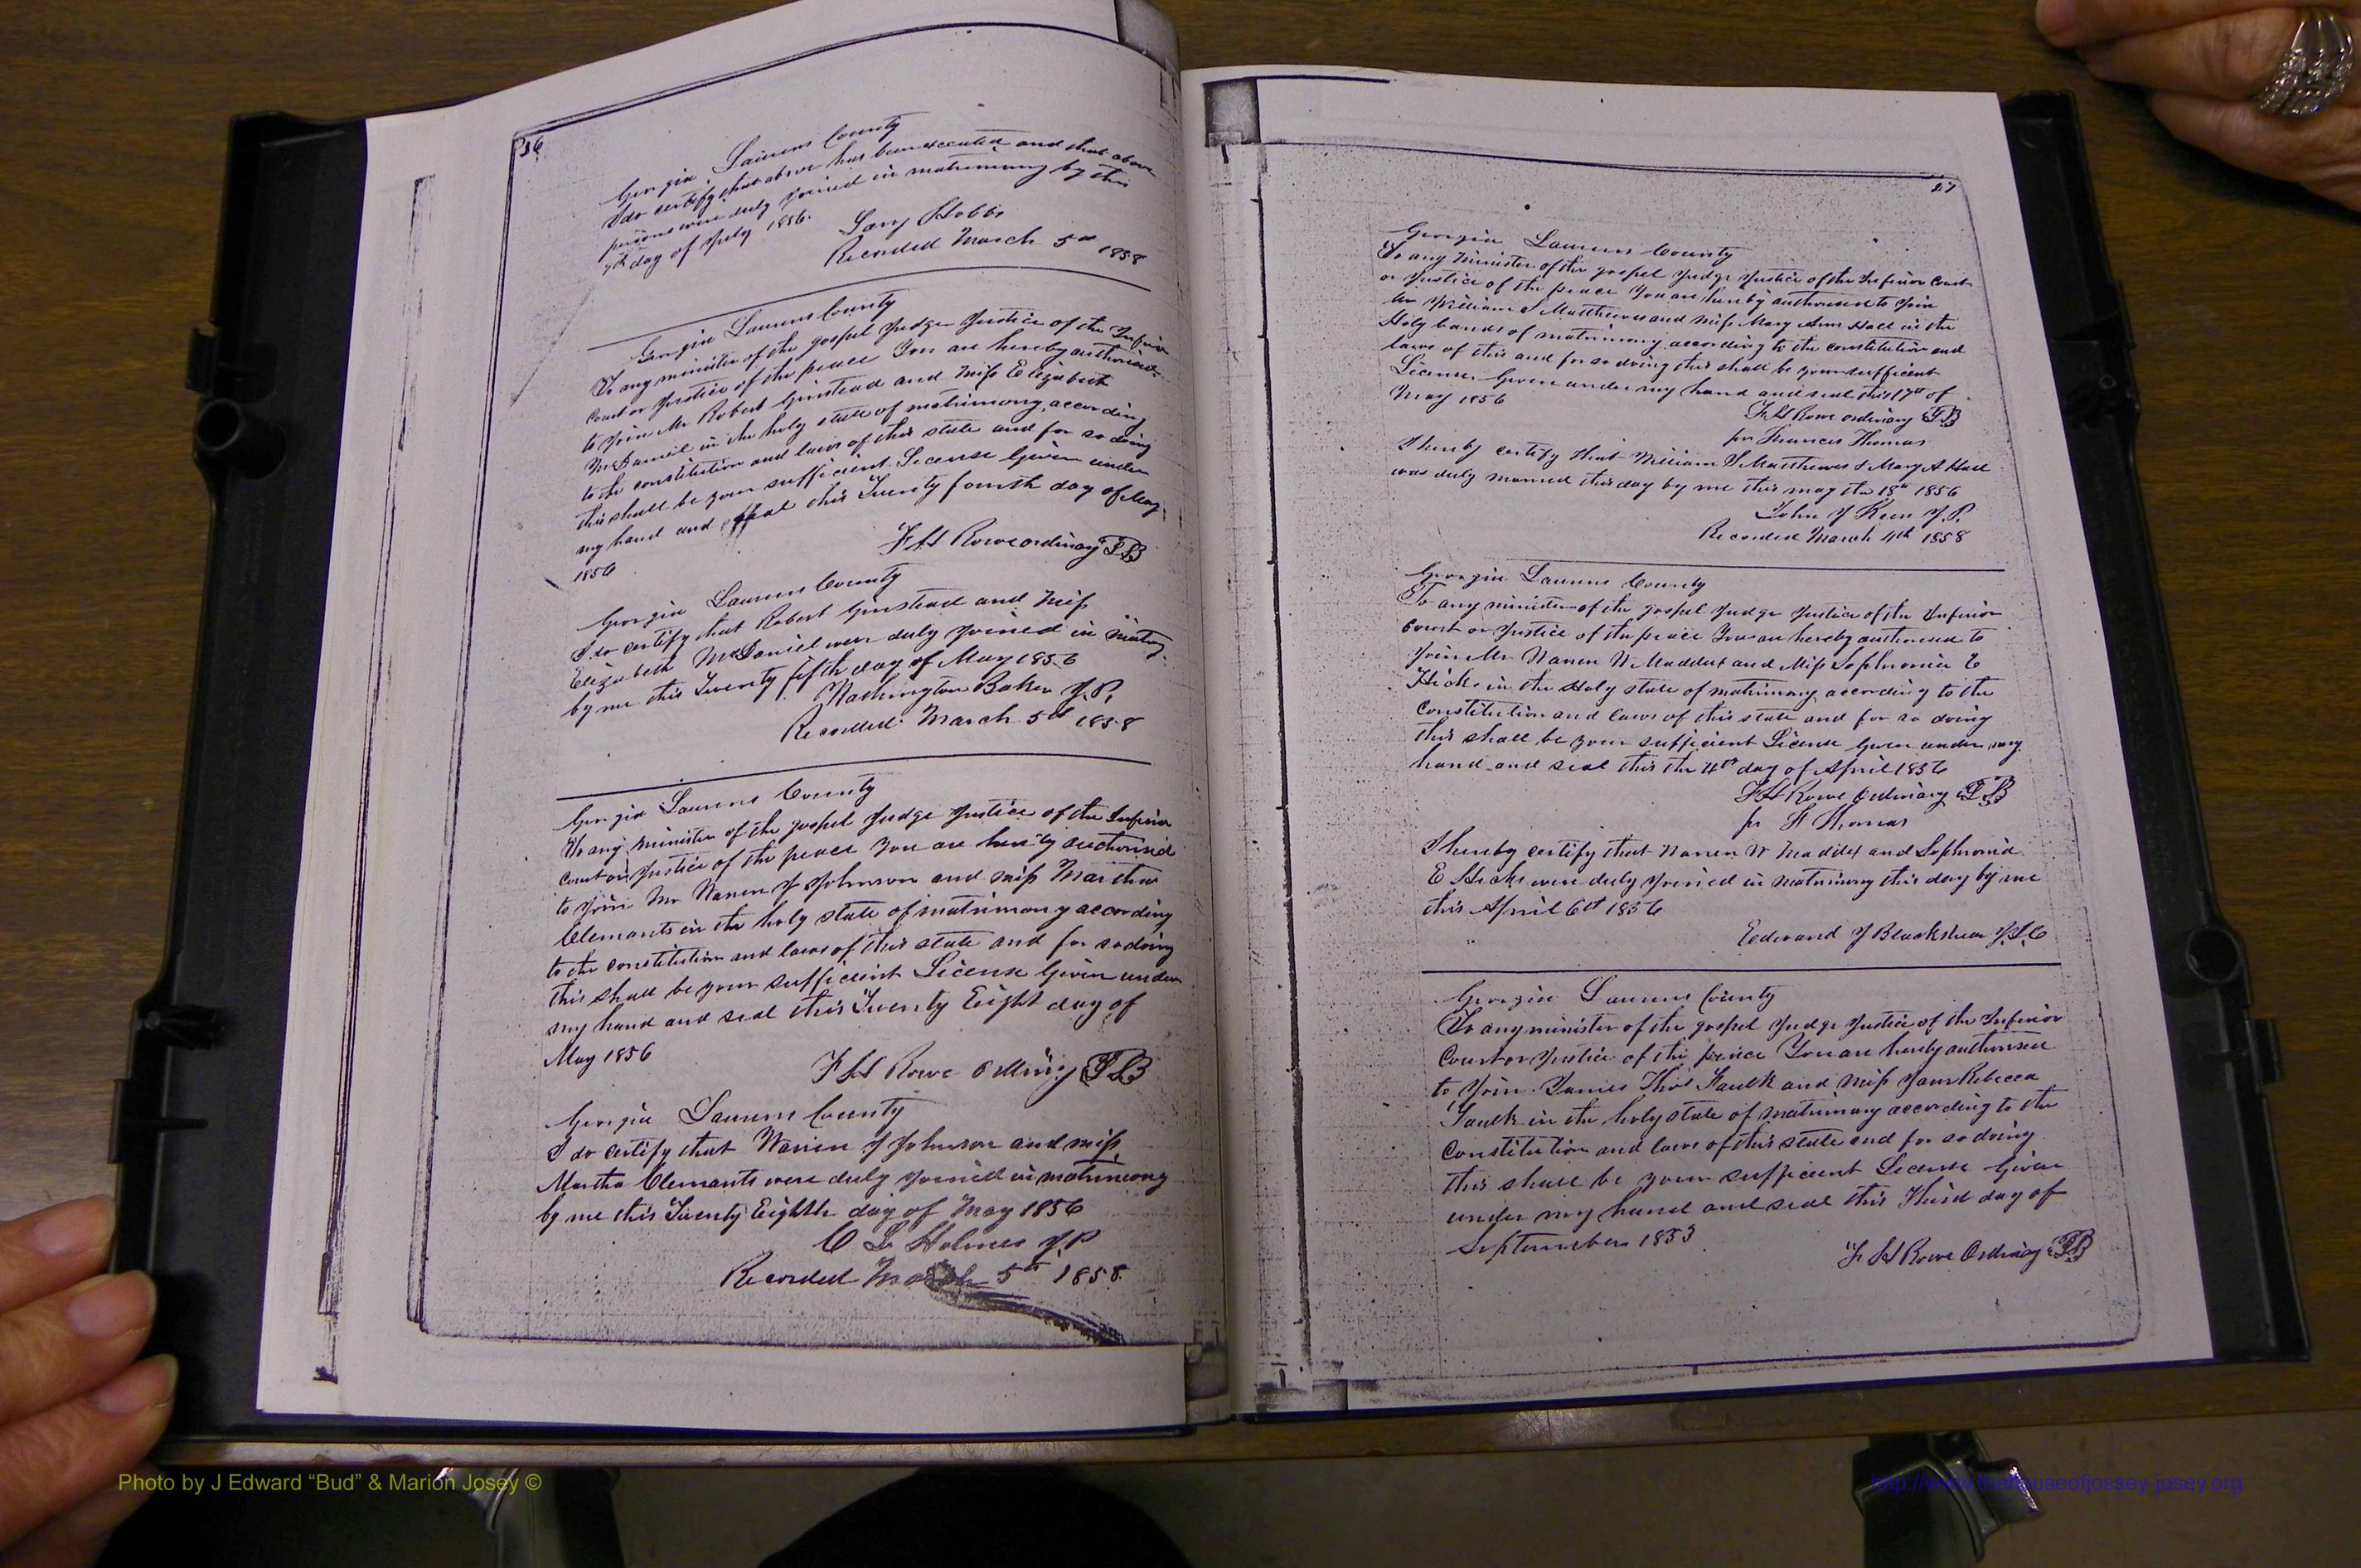 36
Georgia Laurens County
I do certify that above has been executed and that above
persons were duly joined in matrimony by this
7th day of July 1856.
Lary Hobbs
Recorded March 5th 1858
Georgia Laurens County
To any minister of the gospel Judge Justice of the Inferior
Court or Justice of the peace You are hereby authorised
to Join Mr Robert Grinstead and Miss Elizabeth
McDaniel in the holy state of matrimony, according
to the constitution and laws of this state and for so doing
this shall be your sufficient License Given under
my hand and seal this Twenty fourth day of May
1856
F H Rowe ordinary
Georgia Laurens County
I do certify that Robert Grinstead and Miss
Elizabeth McDaniel were duly Joined in matrimony
by me this Twenty fifth day of May 1856
Washington Baker J.P.
Recorded March 5th 1858
Georgia Laurens County
To any minister of the gospel Judge Justice of the Inferior
Court or Justice of the peace You are hereby authorised
to Join Mr Warren J Johnson and miss Martha
Clemants in the holy state of matrimony according
to the constitution and laws of this state and for so doing
this shall be your sufficient License Given under
my hand and seal this Twenty Eight day of
May 1856
F H Rowe Ordinary
Georgia Laurens County
I do certify that Warren J Johnson and miss
Martha Clemants were duly Joined in matrimony
by me this Twenty Eighth day of May 1856
C L Holmes J.P
Recorded March 5th 1858
37
Georgia Laurens County
To any Minister of the gospel Judge Justice of the Inferior Court
or Justice of the peace You are hereby authorised to Join
Mr William S Matthews and miss Mary Ann Hall in the
Holy bands of matrimony according to the constitution and
laws of this and for so doing this shall be your sufficient
License Given under my hand and seal this 17th of
May 1856
F H Rowe ordinary
for Francis Thomas
I hereby certify that William S Matthews & Mary A Hall
was duly married this day by me this may the 18th 1856
John J Keen J.P.
Recorded March 4th 1858
Georgia Laurens County
To any minister of the gospel Judge Justice of the Inferior
Court or Justice of the peace You are hereby authorised to
Join Mr Warren W Maddux and Miss Sophronia E
Hicks in the Holy state of matrimony according to the
constitution and laws of this state and for so doing
this shall be your sufficient License Given under my
hand and seal this the 4th day of April 1856
F H Rowe Ordinary
for F Thomas
I hereby certify that Warren W Maddux and Sophronia
E Hicks were duly Joined in matrimony this day by me
this April 6th 1856
Edward J Blackshear J.I.C
Georgia Laurens County
To any minister of the gospel Judge Justice of the Inferior
Court or Justice of the peace You are hereby authorised
to Join James Thos Faulk and miss Jane Rebecca
Faulk in the holy state of matrimony according to the
constitution and laws of this state and for so doing
this shall be your sufficient License Given
under my hand and seal this Third day of
September 1853
F H Rowe Ordinary
Photo by J Edward “Bud” & Marion Josey ©
http://www.thehouseofjossey-josey.org